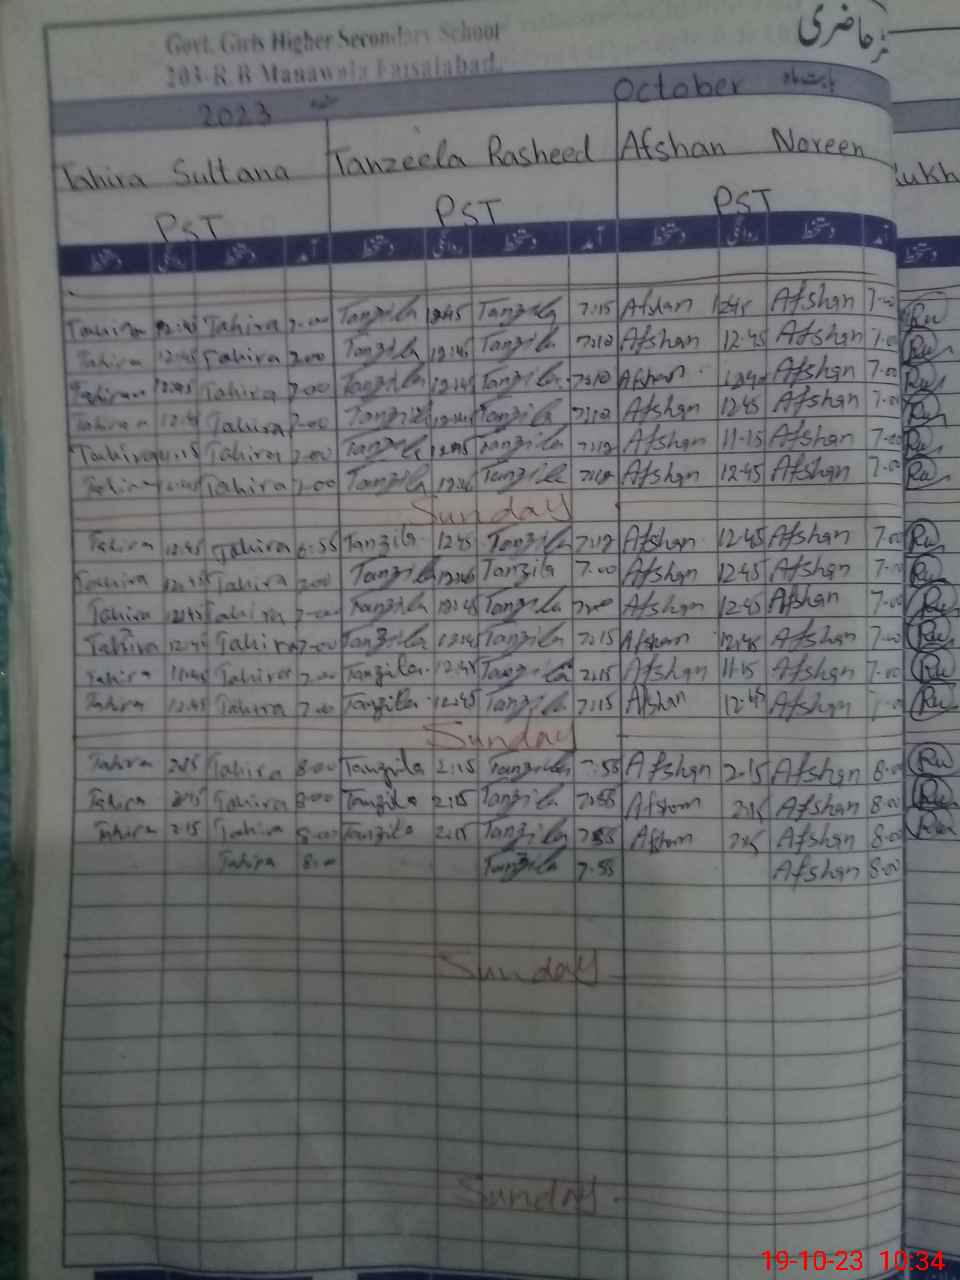 Govt. Girls Higher Secondary School
203-R.B Manawala Faisalabad.
حاضری
2023 October بابت ماہ
Tahira Sultana Tanzeela Rasheed Afshan Noreen Rukh
PST PST PST
دستخط روانگی دستخط آمد دستخط روانگی دستخط آمد دستخط روانگی دستخط آمد
Tahira 12:45 Tahira 7:00 Tanzila 12:45 Tanzila 7:15 Afshan 12:45 Afshan 7:00 Ru
Tahira 12:45 Tahira 7:00 Tanzila 12:45 Tanzila 7:10 Afshan 12:45 Afshan 7:00 Ru
Tahira 12:45 Tahira 7:00 Tanzila 12:45 Tanzila 7:10 Afshan Afshan 7:00 Ru
Tahira 12:45 Tahira 7:00 Tanzila Tanzila 7:10 Afshan 12:45 Afshan 7:00 Ru
Tahira 11:15 Tahira 7:00 Tanzila Tanzila 7:12 Afshan 11-15 Afshan 7:00 Ru
Tahira 12:45 Tahira 7:00 Tanzila Tanzila Afshan 12:45 Afshan 7:00 Ru
Sunday
Tahira 12:45 Tahira 6:55 Tanzila 12:45 Tanzila 7:12 Afshan 12:45 Afshan 7:00 Ru
Tahira 12:45 Tahira 7:00 Tanzila 12:45 Tanzila 7:00 Afshan 12:45 Afshan 7:00 Ru
Tahira 12:45 Tahira 7:00 Tanzila 12:45 Tanzila 7:00 Afshan 12:45 Afshan 7:00 Ru
Tahira 12:45 Tahira 7:00 Tanzila 12:45 Tanzila 7:15 Afshan 12:45 Afshan 7:00 Ru
Tahira Tahira 7:00 Tanzila Tanzila 7:15 Afshan 11:15 Afshan 7:00 Ru
Tahira 12:45 Tahira 7:00 Tanzila 12:45 Tanzila 7:15 Afshan 12:45 Afshan 7:00 Ru
Sunday
Tahira 2:15 Tahira 8:00 Tanzila 2:15 Tanzila 7:58 Afshan 2:15 Afshan 8:00 Ru
Tahira 2:15 Tahira 8:00 Tanzila 2:15 Tanzila 7:58 Afshan 2:15 Afshan 8:00 Ru
Tahira 2:15 Tahira 8:00 Tanzila 2:15 Tanzila 7:58 Afshan 2:15 Afshan 8:00 Ru
Tahira 8:00 Tanzila 7:58 Afshan 8:00
Sunday
Sunday
19-10-23 10:34